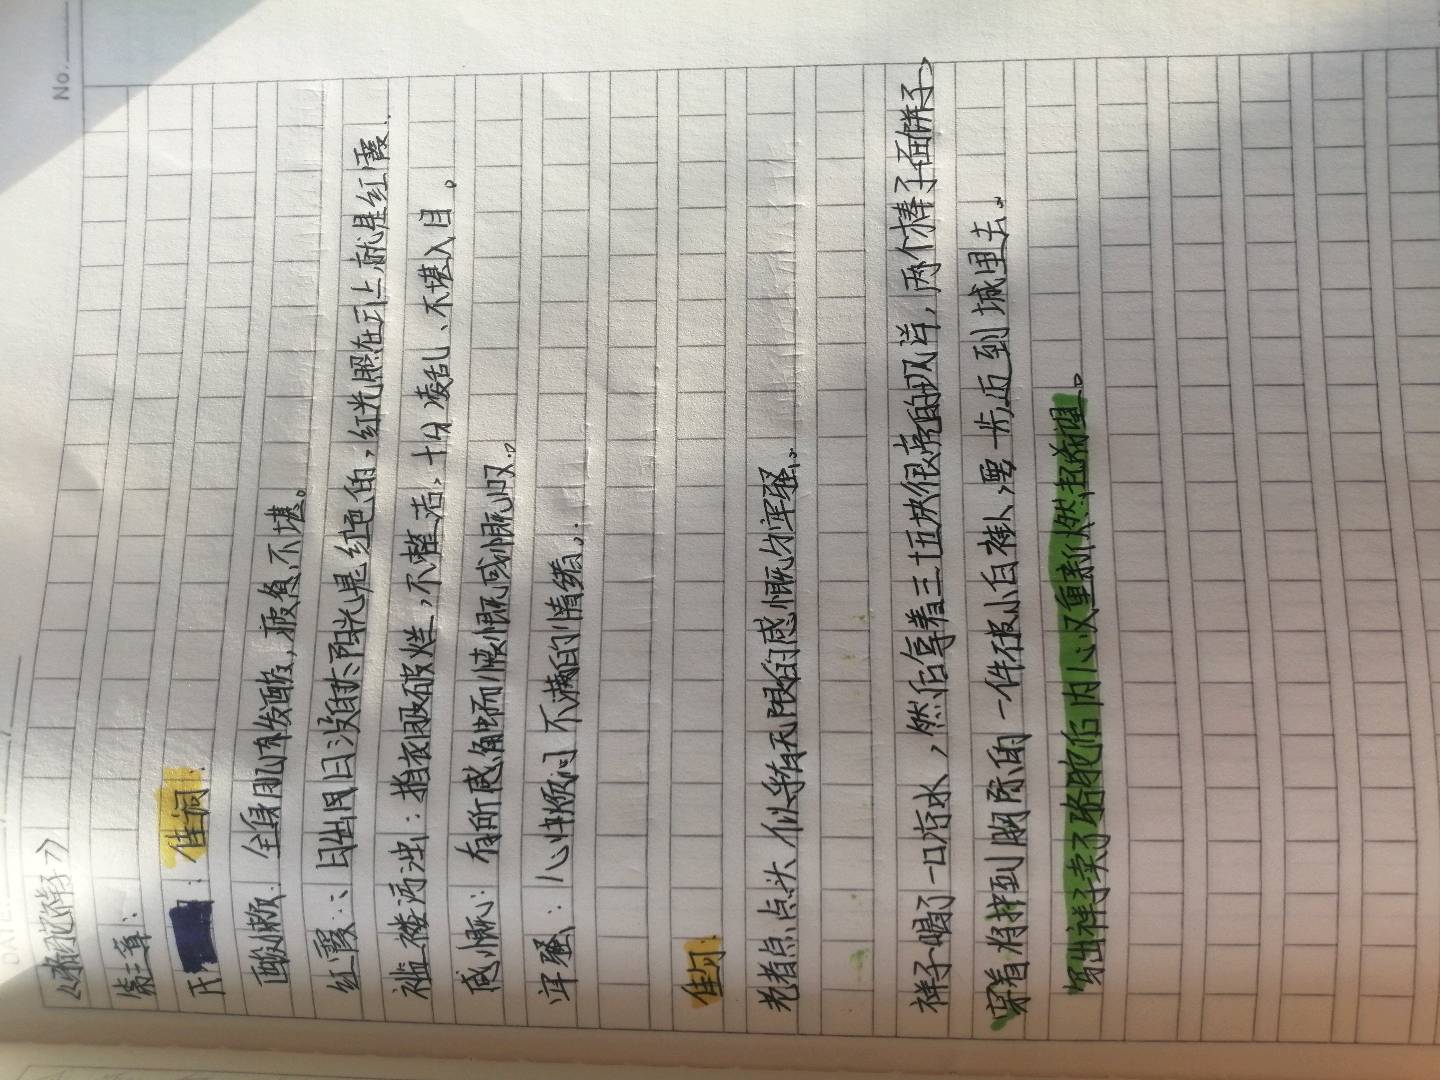 No.
DATE
《骆驼祥子》
第三章:
氏 : 佳词:
酸懒: 全身肌肉发酸,疲惫不堪。
红霞:: 日出因日没时太阳光是红色的,红光照在云上就是红霞.
褴褛污浊: 指衣服破烂,不整洁,十分凌乱、不堪入目。
感慨: 有所感触而慷慨感慨叹。
牢骚: 心中烦闷不满的情绪。
佳句:
老者点点头似乎有无限的感慨与牢骚。
祥子喝了一口凉水,然后拿着三十五块很亮的现洋,两个棒子面饼子
穿着将护到胸际的一件破小白褂,要一步迈到城里去。
写出祥子卖了骆驼后内心又重新燃起希望。